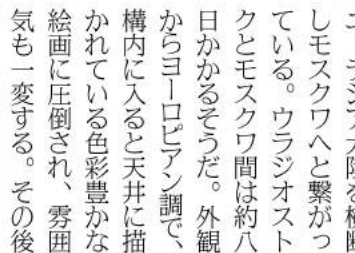 しモスクワへと繋がっ
ている。ウラジオスト
クとモスクワ間は約八
日かかるそうだ。外観
からヨーロピアン調で、
構内に入ると天井に描
かれている色彩豊かな
絵画に圧倒され、雰囲
気も一変する。その後